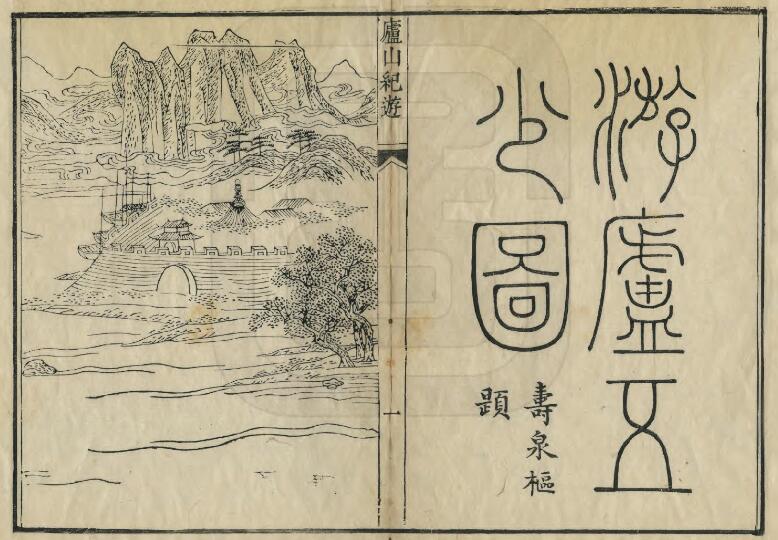 游廬五
少圖
壽泉樞
題
廬山紀遊
一